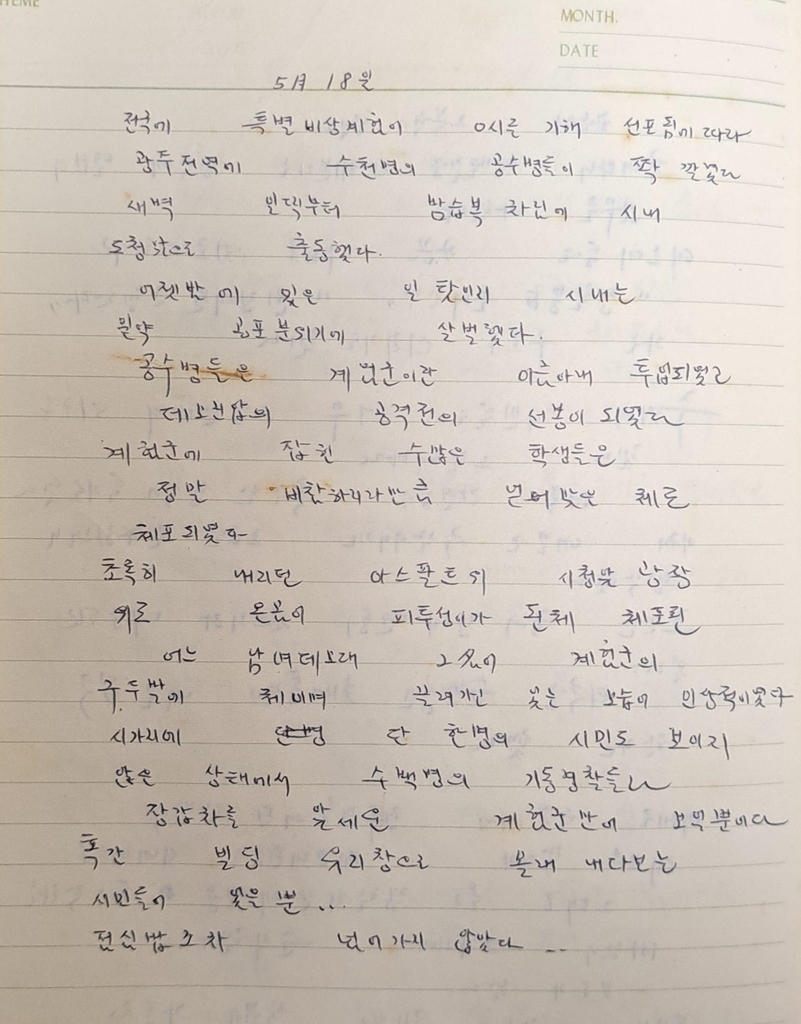 HEME
MONTH.
DATE
5月 18일
전국에 특별 비상계엄이 0시를 기해 선포됨에 따라
광주전역에 수천명의 공수병들이 쫙 깔렸다
새벽 일찍부터 시내
도청앞으로 출동했다.
어젯밤에 있은 일 탓인지 시내는
공포 분위기에 살벌했다.
공수병들은 계엄군이란 이름아래 투입되었고
데모진압의 공격전의 선봉이 되었다
계엄군에 잡힌 수많은 학생들은
정말 비참하리라만큼 얻어맞은 체로
체포되었다
초록히 내리던 아스팔트위 시청앞 광장
위로 온몸이 피투성이가 된체 체포된
어느 남녀데모대 계엄군의
구두발에 체이며 끌려가던 모습이 인상적이었다
시가지에 단 한명의 시민도 보이지
않은 상태에서 수백명의 기동경찰들과
장갑차를 앞세운 계엄군만이 보일뿐이다
폭간 빌딩 유리창으로 몰래 내다보는
시민들이 있을 뿐...
전신밥조차 넘어가지 않았다 ...